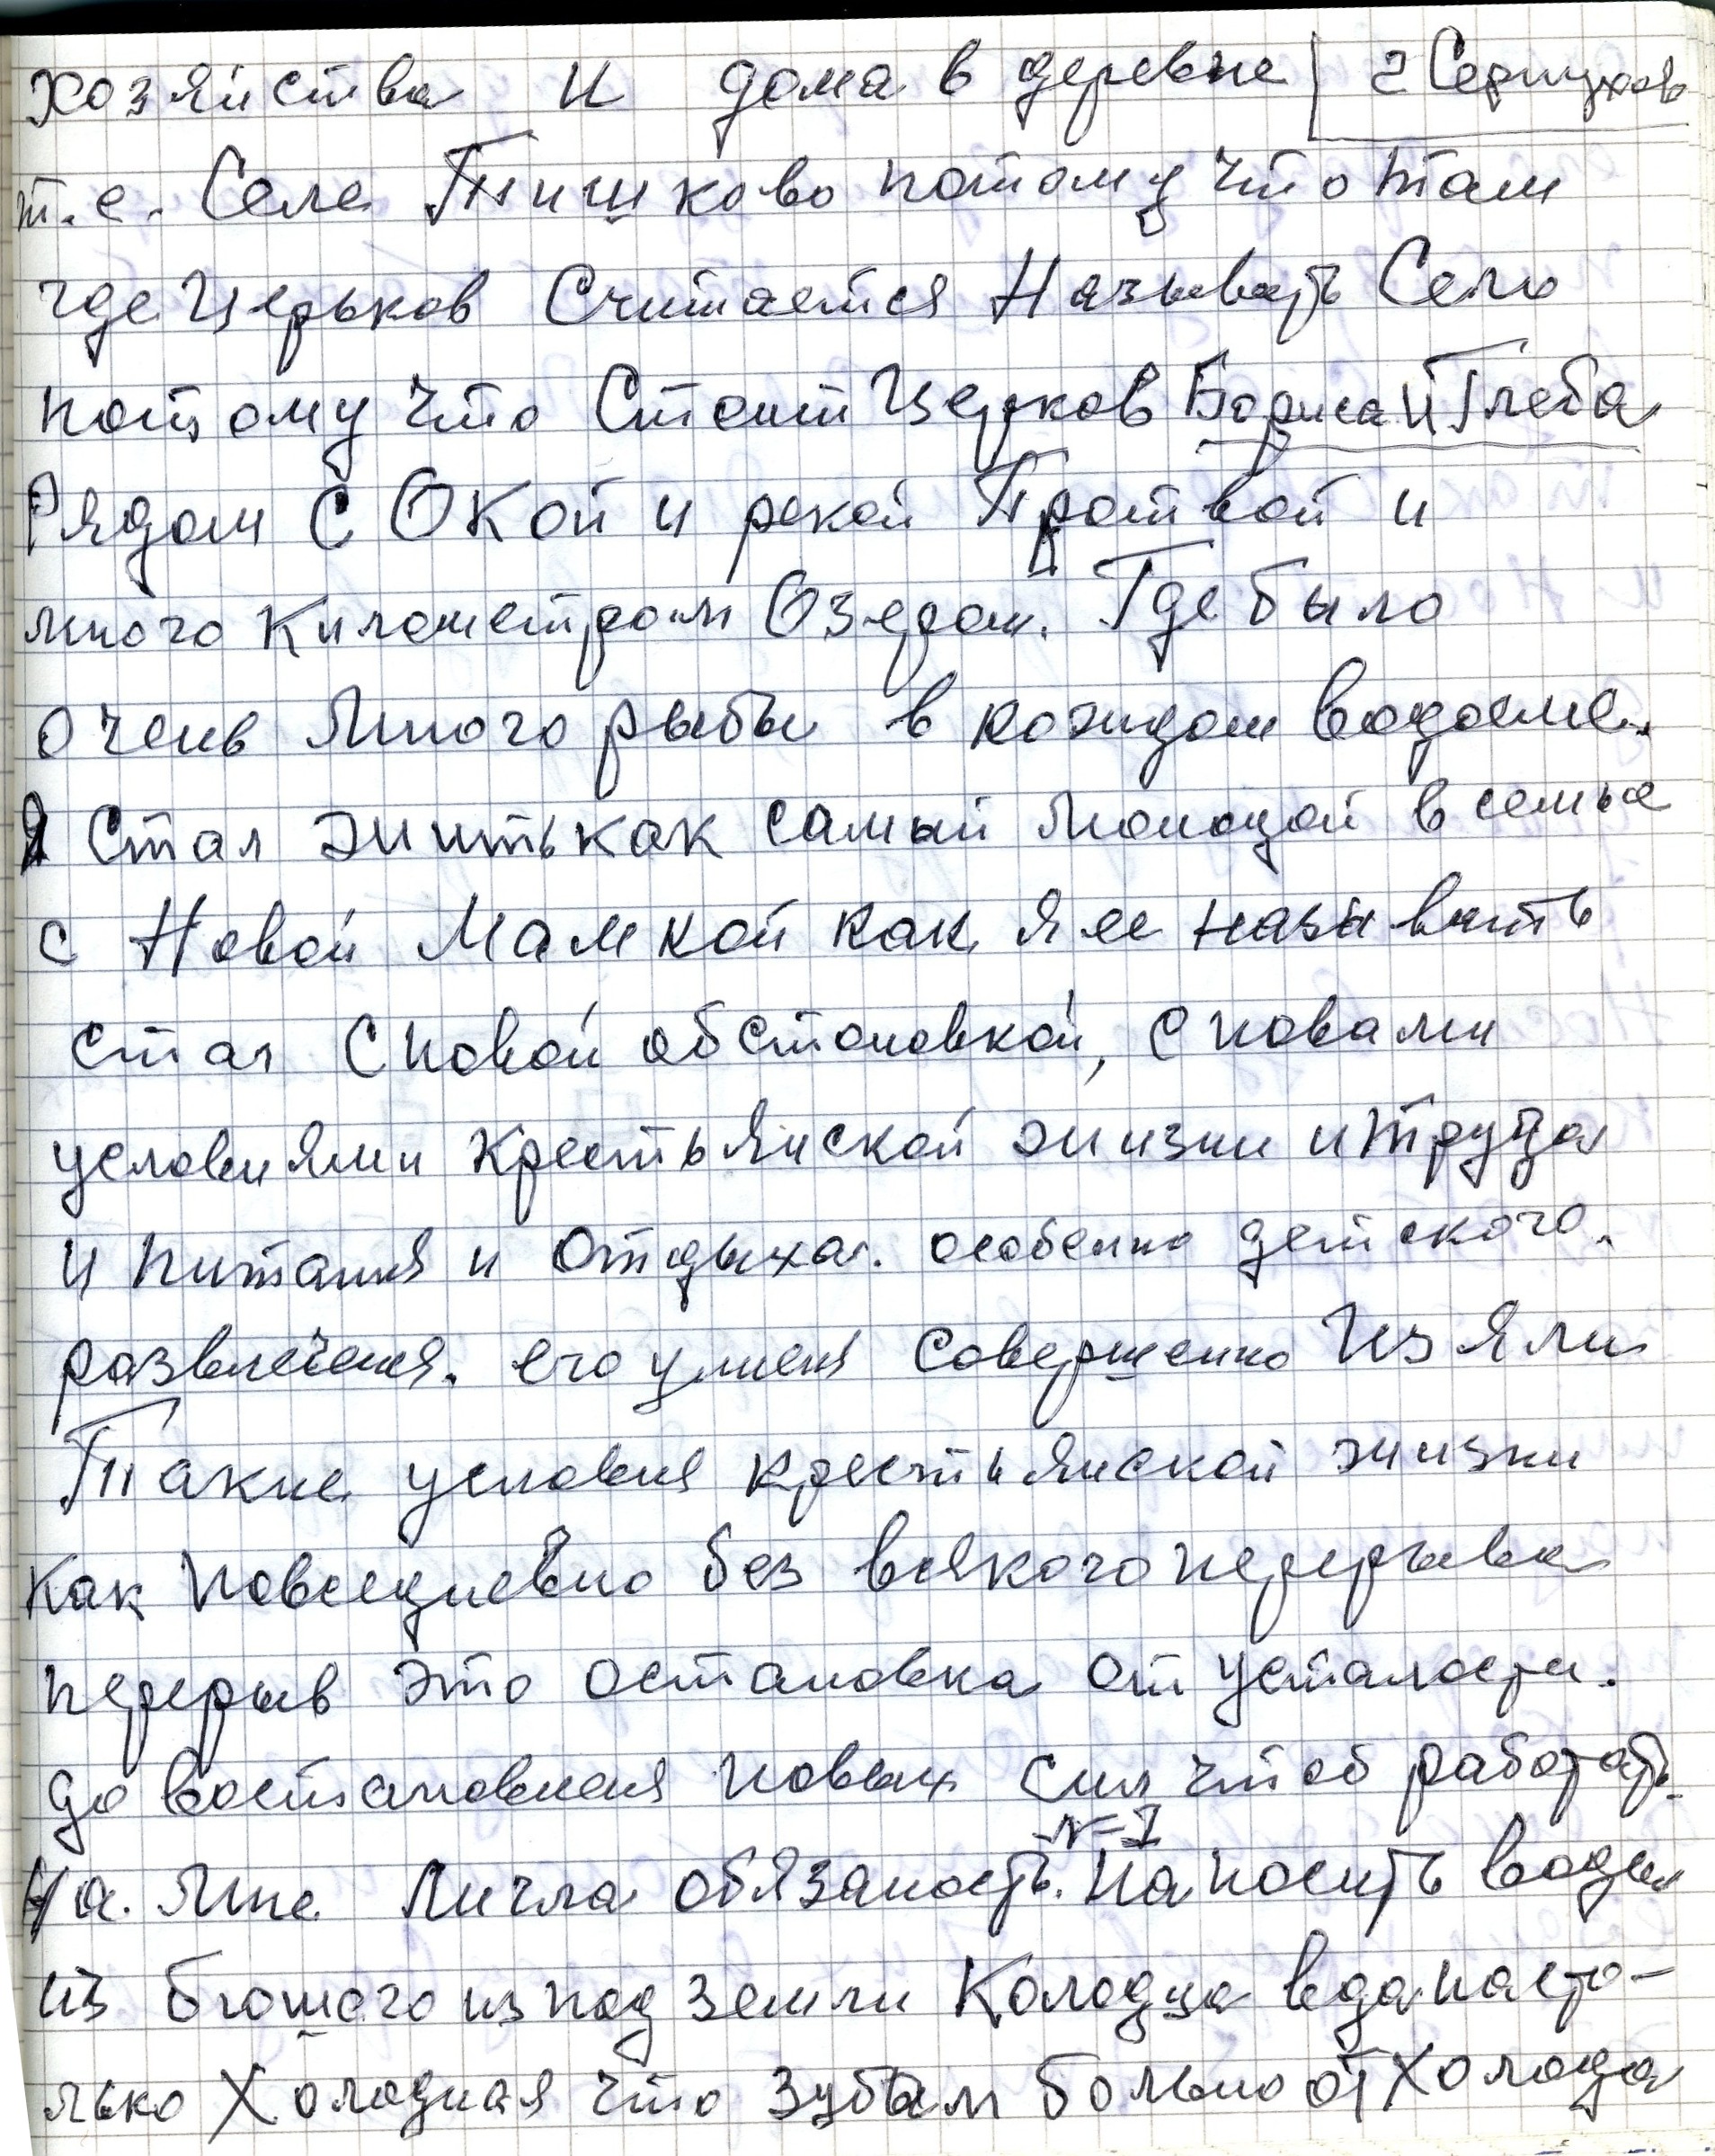 хозяйства и дома в деревне | г Серпухов
т.е. Селе Тишково потому что там
где Церьков Считается Называть Село
потому что Стоит Церков Бориса и Глеба
Рядом с Окой и рекой Протвой и
много километром Озером. Где было
очень много рыбы в кождом водоеме.
Я Стал жить как самый молодой в семье
с Новой Мамкой как я ее называть
стал с новой обстоновкой, с новами
условиями крестьянской жизни и труда
и питания и отдыха. особенно детского.
развлеченя. его у меня совершенно Изяли
Такие условия крестьянской жизни
как повседневно без всякого перерыва
перерыв это остановка от усталости.
до востановления новых сил чтоб работать.
N=1
На. мне лигла обязаность. На носить воды
из бющего из под земли Колодца вода насто-
лько Холодная что зубам больно от Холода